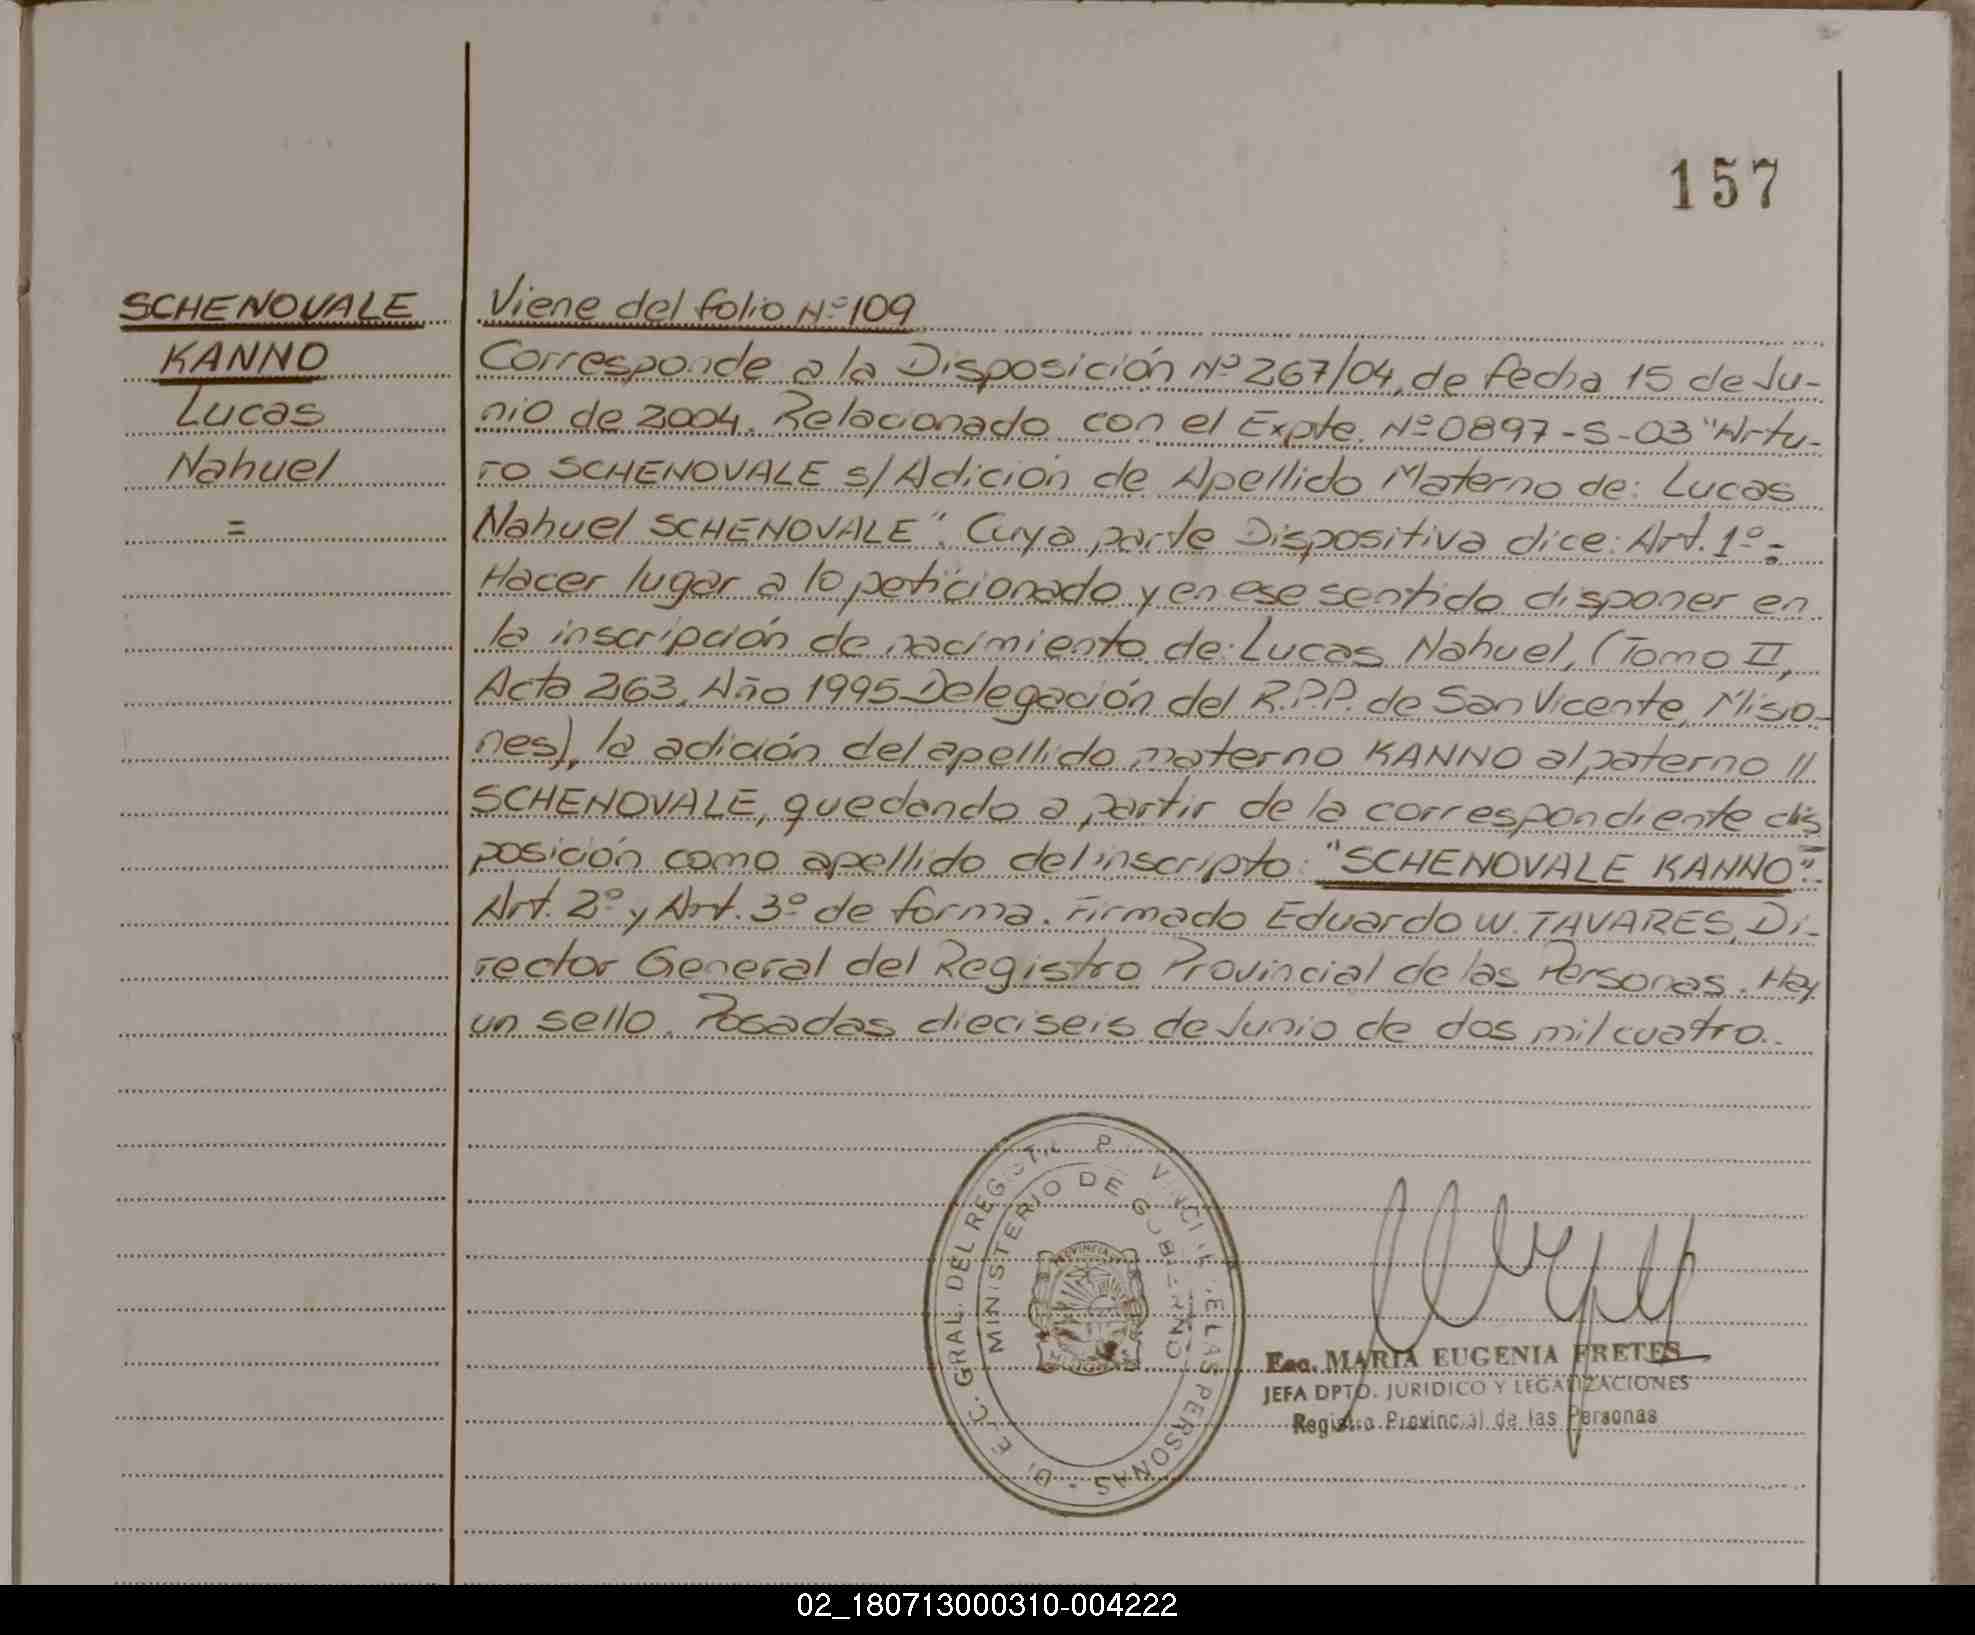 157
SCHENOVALE
KANNO
Lucas
Nahuel
=
Viene del folio Nº 109
Corresponde a la Disposición Nº 267/04, de fecha 15 de Ju-
nio de 2004. Relacionado con el Expte. Nº 0897-S-03 "Artu-
ro SCHENOVALE s/Adición de Apellido Materno de: Lucas
Nahuel SCHENOVALE". Cuya parte Dispositiva dice: Art. 1º:
Hacer lugar a lo peticionado y en ese sentido disponer en
la inscripción de nacimiento de: Lucas Nahuel, (Tomo II,
Acta 263, Año 1995 Delegación del R.P.P. de San Vicente, Misio-
nes), la adición del apellido materno KANNO al paterno //
SCHENOVALE, quedando a partir de la correspondiente dis
posición como apellido del inscripto: "SCHENOVALE KANNO".
Art. 2º y Art. 3º de forma. Firmado Eduardo W. TAVARES, Di-
rector General del Registro Provincial de las Personas. Hay
un sello. Posadas dieciseis de Junio de dos mil cuatro.
GRAL. DEL REGIST P VINCI ELAS PERSONAS
MINISTERIO DE GOBIERNO
PROVINCIA
MISIONES
Esc. MARIA EUGENIA FRETES
JEFA DPTO. JURIDICO Y LEGALIZACIONES
Registro Provincial de las Personas
02_180713000310-004222